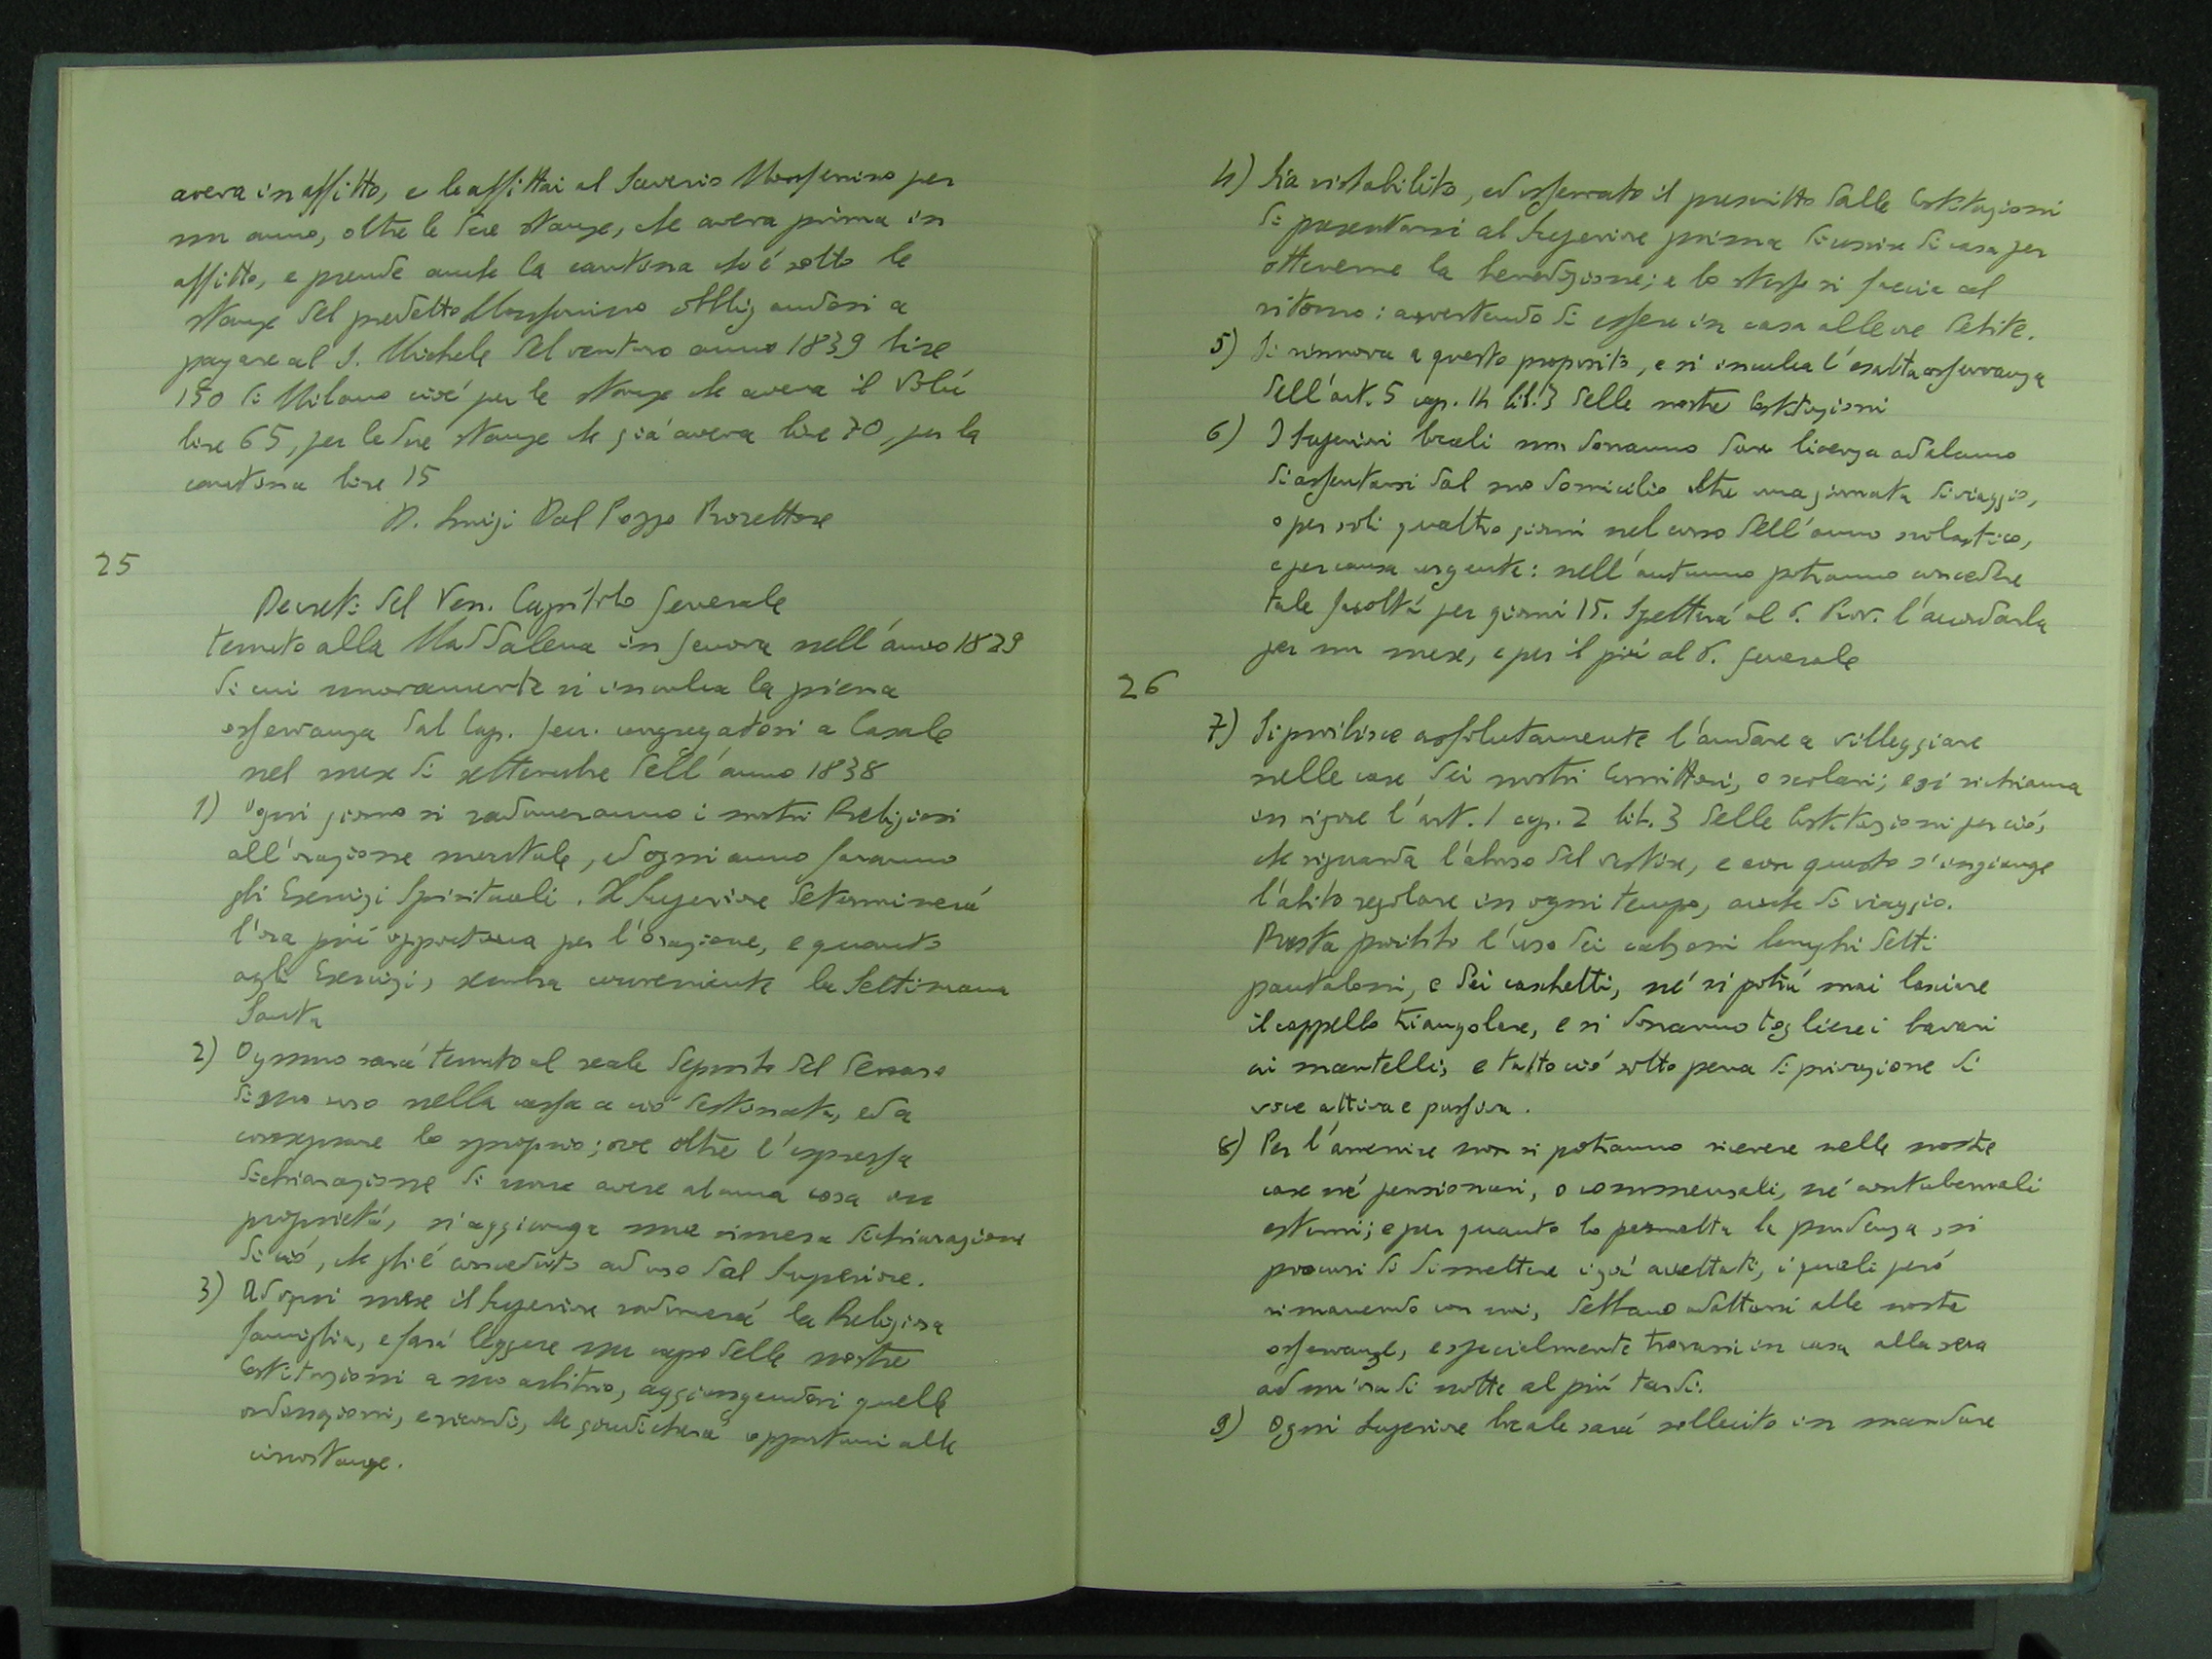 aveva in affitto, e le affittai al Saverio Monferrino per
un anno, oltre le due stanze, che aveva prima in
affitto, e prende anche la cantina che è sotto le
stanze del predetto Monferrino obbligandosi a
pagare al S. Michele del venturo anno 1839 lire
150 di Milano cioé per le stanze che aveva il
lire 65, per le due stanze che giá aveva lire 70, per la
cantina lire 15
D. Luigi Dal Pozzo Prorettore
25
Decreti del Ven. Capitolo Generale
tenuto alla Maddalena in Genova nell'anno 1829
di cui nuovamente si inculca la piena
osservanza dal Cap. Gen. congregatosi a Casale
nel mese di settembre dell'anno 1838
1) Ogni giorno si raduneranno i nostri Religiosi
all'orazione mentale, ed ogni anno faranno
gli Esercizi Spirituali. Il Superiore determinerá
l'ora piú opportuna per l'orazione, e quanto
agli Esercizi, sembra conveniente la Settimana
Santa
2) Ognuno sará tenuto al reale deposito del denaro
di suo uso nella cassa a ció destinata, ed a
consegnare lo sproprio; ove oltre l'espressa
dichiarazione di non avere alcuna cosa in
proprietá, si aggiunga una sincera dichiarazione
di ció, che gli é conceduto ad uso dal Superiore.
3) Ad ogni mese il Superiore radunerá la Religiosa
famiglia, e fará leggere un capo delle nostre
Costituzioni a suo arbitrio, aggiungendovi quelle
ordinazioni, e ricordi, che giudicherá opportuni alle
circostanze.
4) Sia ristabilito, ed osservato il prescritto dalle Costituzioni
di presentarsi al Superiore prima di uscire di casa per
ottenerne la benedizione; e lo stesso si faccia al
ritorno: avvertendo di essere in casa alle ore debite.
5) Si rinnova a questo proposito, e si inculca l'esatta osservanza
dell'art. 5 cap. 14 lib. 3 delle nostre Costituzioni
6) I Superiori locali non doranno dare licenza ad alcuno
di assentarsi dal suo domicilio oltre una giornata di viaggio,
o per soli quattro giorni nel corso dell'anno scolastico,
e per causa urgente: nell'autunno potranno concedere
tale facoltá per giorni 15. Spetterá al P. Prov. l'accordarla
per un mese, e per il piú al P. Generale
26
7) Si proibisce assolutamente l'andare a villeggiare
nelle case dei nostri Convittori, o scolari; e si richiama
in vigore l'art. 1 cap. 2 lib. 3 delle Costituzioni per ció,
che riguarda l'abuso del vestire, e con questo s'ingiunge
l'abito regolare in ogni tempo, anche di viaggio.
Resta proibito l'uso dei calzoni lunghi detti
pantaloni, e dei caschetti, né si potrá mai lasciare
il cappello triangolare, e si doranno togliere i bavari
ai mantelli, e tutto ció sotto pena di privazione di
voce attiva e passiva.
8) Per l'avvenire non si potranno ricevere nelle nostre
case né pensionari, o commensali, né contubernali
esterni; e per quanto lo permetta la prudenza, si
procuri di dimettere i giá accettati, i quali peró
rimanendo con noi, debbano adattarsi alle nostre
osservanze, e specialmente trovarsi in casa alla sera
ad un'ora di notte al piú tardi.
9) Ogni Superiore locale sará sollecito in mandare